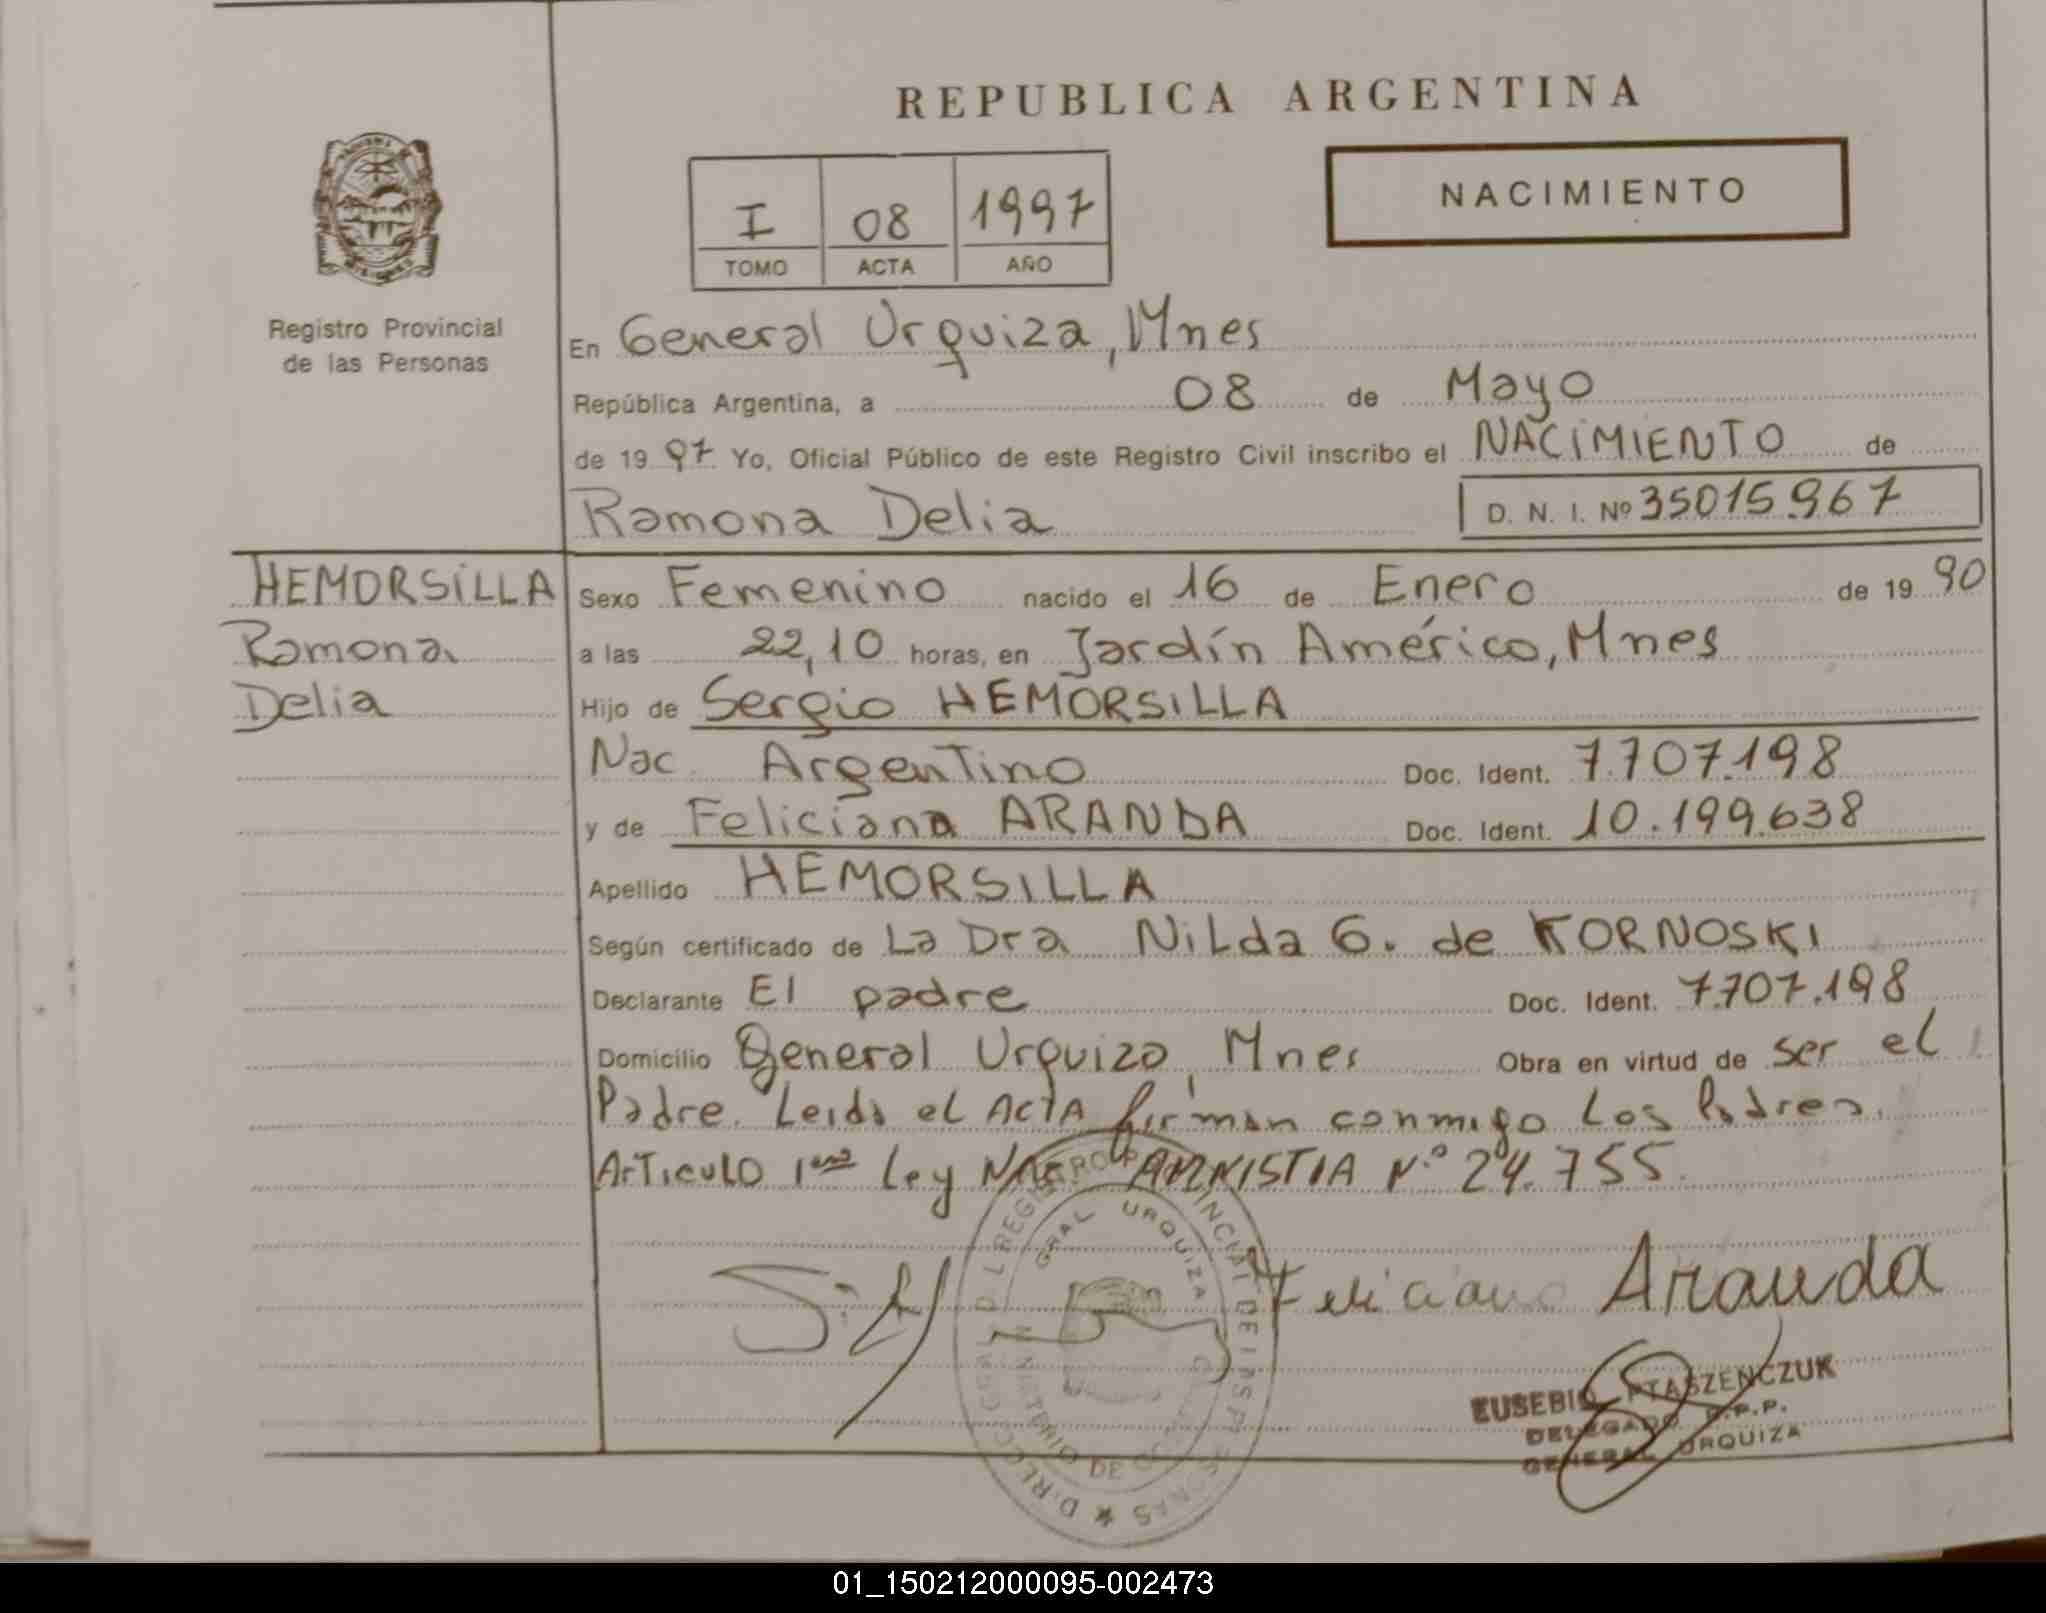 REPUBLICA ARGENTINA
NACIMIENTO
I 08 1997
TOMO ACTA AÑO
Registro Provincial
de las Personas
En General Urquiza, Mnes
República Argentina, a 08 de Mayo
de 19 97 Yo, Oficial Público de este Registro Civil inscribo el NACIMIENTO de
Ramona Delia D. N. I. Nº 35015.967
HEMORSILLA
Ramona
Delia
Sexo Femenino nacido el 16 de Enero de 19 90
a las 22,10 horas, en Jardín América, Mnes
Hijo de Sergio HEMORSILLA
Nac. Argentino Doc. Ident. 7.707.198
y de Feliciana ARANDA Doc. Ident. 10.199.638
Apellido HEMORSILLA
Según certificado de La Dra Nilda G. de KORNOSKI
Declarante El padre Doc. Ident. 7.707.198
Domicilio General Urquiza, Mnes Obra en virtud de ser el
Padre. Leida el ACTA firman conmigo Los Padres.
ARTICULO 1ero Ley Nac. AMNISTIA Nº 24.755.
Feliciana Aranda
GRAL URQUIZA
EUSEBIO PTASZENCZUK
DELEGADO R.P.P.
GENERAL URQUIZA
01_150212000095-002473